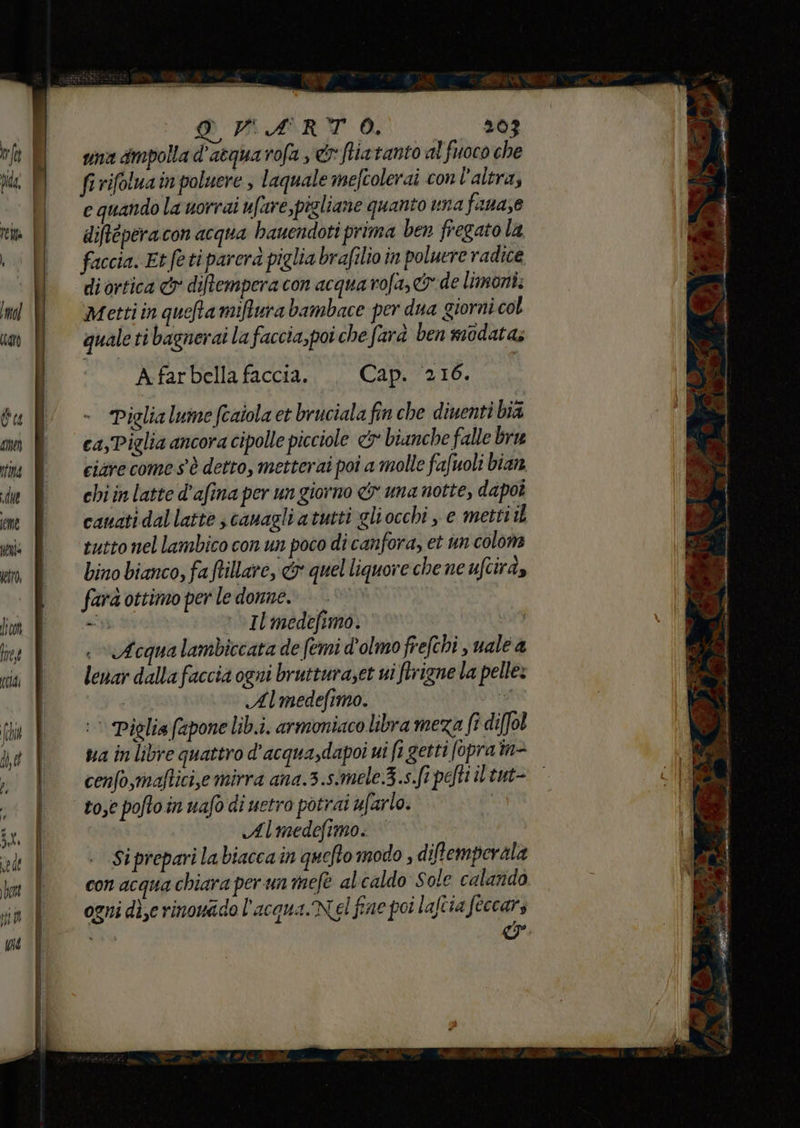 QVARTO. 203
una ampolla d'acqua rosa, & stia tanto al fuoco che
si risolua in poluere, laquale mescolerai con l'altra,
e quando la uorrai usare, pigliane quanto una faua, e
distēpera con acqua hauendoti prima ben fregato la
faccia. Et se ti parerà piglia brasilio in poluere radice
di ortica & distempera con acqua rosa, & de limoni.
Metti in questa mistura bambace per dua giorni col
quale ti bagnerai la faccia, poi che sarà ben mōdata.
A far bella faccia. Cap. 216.
Piglia lume scaiola et bruciala fin che diuenti biā
ca, Piglia ancora cipolle picciole & bianche falle bru
ciare come s'è detto, metterai poi a molle fasuoli bian
chi in latte d'asina per un giorno & una notte, dapoi
cauati dal latte, cauagli a tutti gli occhi, e metti il
tutto nel lambico con un poco di canfora, et un colom
bino bianco, fa stillare, & quel liquore che ne uscirà,
sarà ottimo per le donne.
Il medesimo.
Acqua lambiccata de semi d'olmo freschi, uale a
leuar dalla faccia ogni bruttura, et ui strigne la pelle.
Al medesimo.
Piglia sapone lib.i. armoniaco libra meza si dissol
ua in libre quattro d'acqua, dapoi ui si getti sopra in-
censo, mastici, e mirra ana.3.s.mele.3.s. si pesti il tut-
to, e posto in uaso di uetro potrai usarlo.
Al medesimo.
Si prepari la biacca in questo modo, distemperala
con acqua chiara per un mese al caldo Sole calando
ogni dì, e rinouādo l'acqua. Nel fine poi lascia seccar,
&